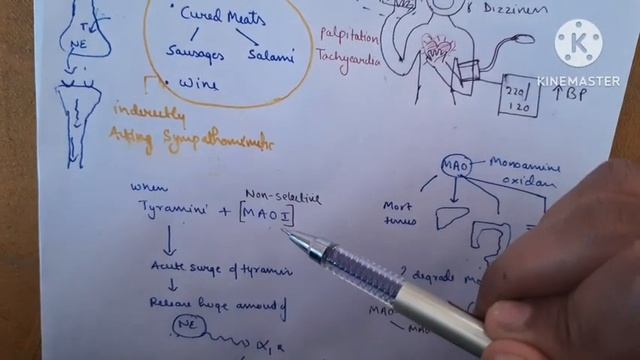 T
NE
• Cured Meats
Sausages Salami
• Wine
indirectly
Acting Sympathomimetic
Dizziness
palpitation
Tachycardia
220/
120
↑BP
KINEMASTER
MAO Monoamine
oxidase
Most
tissues
? degrade
MAO
MAO
when
Non-selective
Tyramine + [MAOI]
Acute surge of tyramine
Release huge amount of
NE α1 R